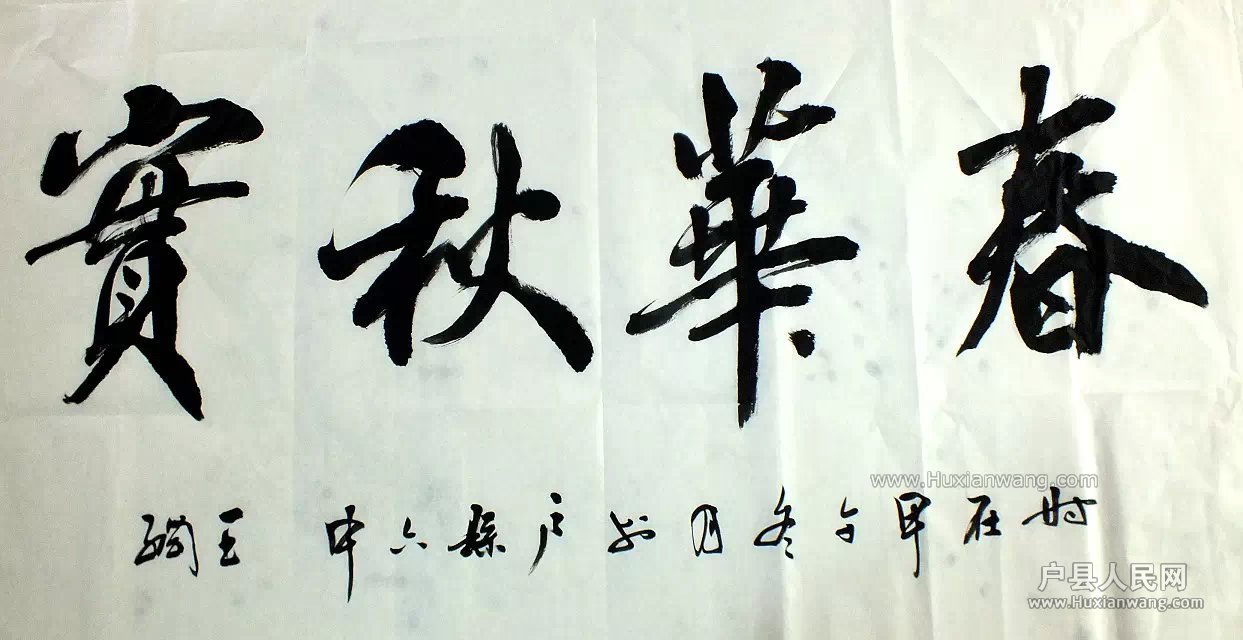 春華秋實
www.Huxianwang.com
时在甲午冬月于户縣六中 王
户县人民网
www.Huxianwang.com